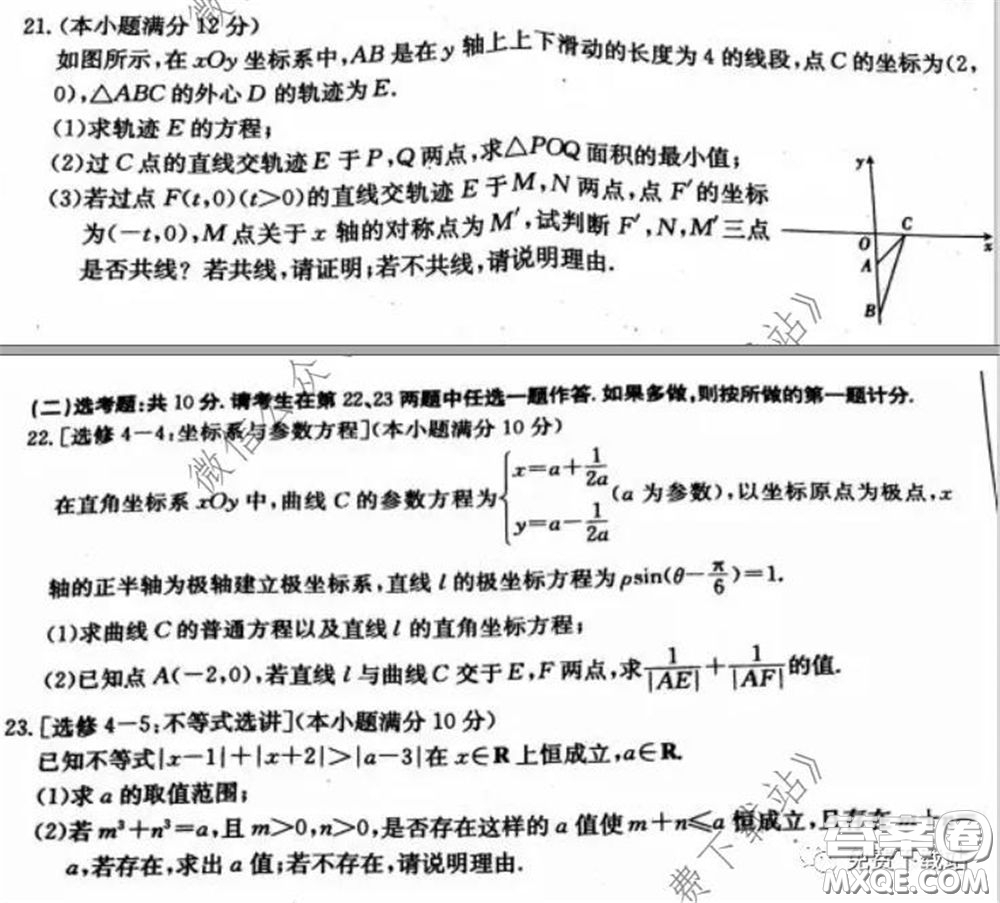 21.(本小题满分12分)
如图所示,在xOy坐标系中,AB是在y轴上上下滑动的长度为4的线段,点C的坐标为(2,
0),△ABC的外心D的轨迹为E.
(1)求轨迹E的方程;
(2)过C点的直线交轨迹E于P,Q两点,求△POQ面积的最小值;
(3)若过点F(t,0)(t>0)的直线交轨迹E于M,N两点,点F′的坐标
为(-t,0),M点关于x轴的对称点为M′,试判断F′,N,M′三点
是否共线?若共线,请证明;若不共线,请说明理由.
y
O
C
x
A
B
站》
微信公众
(二)选考题:共10分.请考生在第22、23两题中任选一题作答.如果多做,则按所做的第一题计分.
22.[选修4-4:坐标系与参数方程](本小题满分10分)
在直角坐标系xOy中,曲线C的参数方程为{x=a+1/2a y=a-1/2a (a为参数),以坐标原点为极点,x
轴的正半轴为极轴建立极坐标系,直线l的极坐标方程为ρsin(θ-π/6)=1.
(1)求曲线C的普通方程以及直线l的直角坐标方程;
(2)已知点A(-2,0),若直线l与曲线C交于E,F两点,求1/|AE|+1/|AF|的值.
23.[选修4-5:不等式选讲](本小题满分10分)
已知不等式|x-1|+|x+2|>|a-3|在x∈R上恒成立,a∈R.
(1)求a的取值范围;
(2)若m³+n³=a,且m>0,n>0,是否存在这样的a值使m+n≤a恒成立,
a,若存在,求出a值;若不存在,请说明理由.
费下载站》
答案圈
免费下载站
MXQE.COM